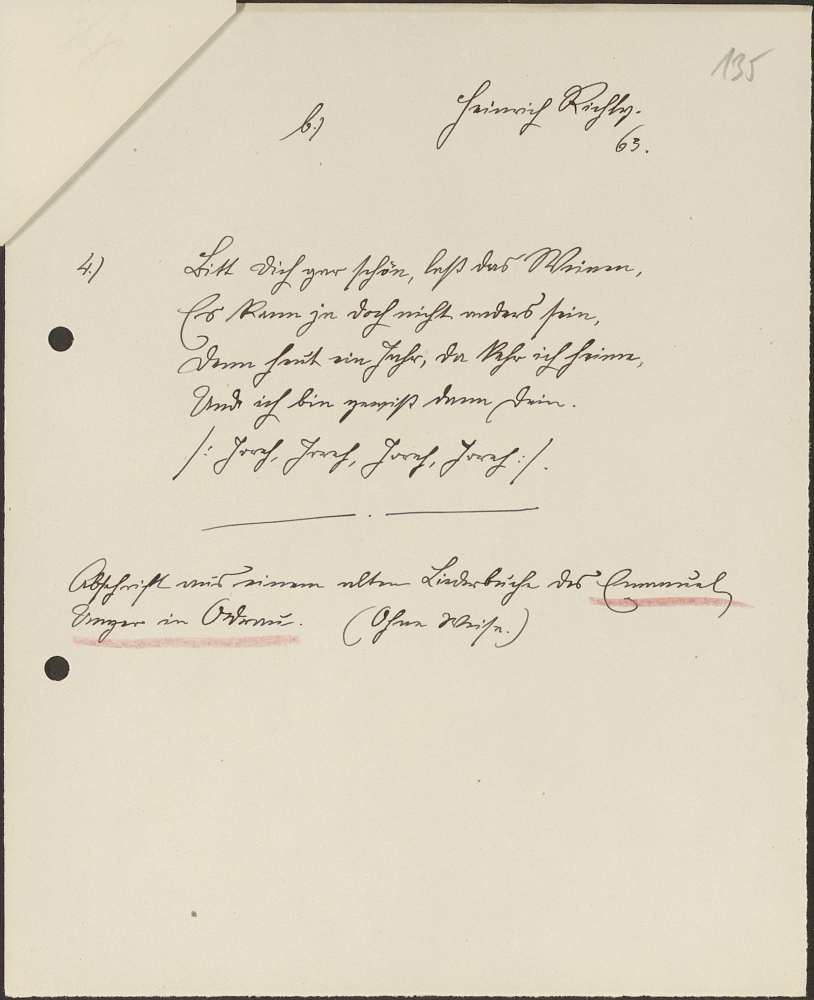 135
b.)
Heinrich Richly.
63.
4.) Bitt Dich gar schön, laß das Weinen,
Es kann ja doch nicht anders sein,
Denn heut ein Jahr, da kehr ich heime,
Und ich bin gewiß dann Dein.
/: :/.
Abschrift aus einem alten Liederbuche des Emanuel
Unger in Odrau. (Ohne Weise.)